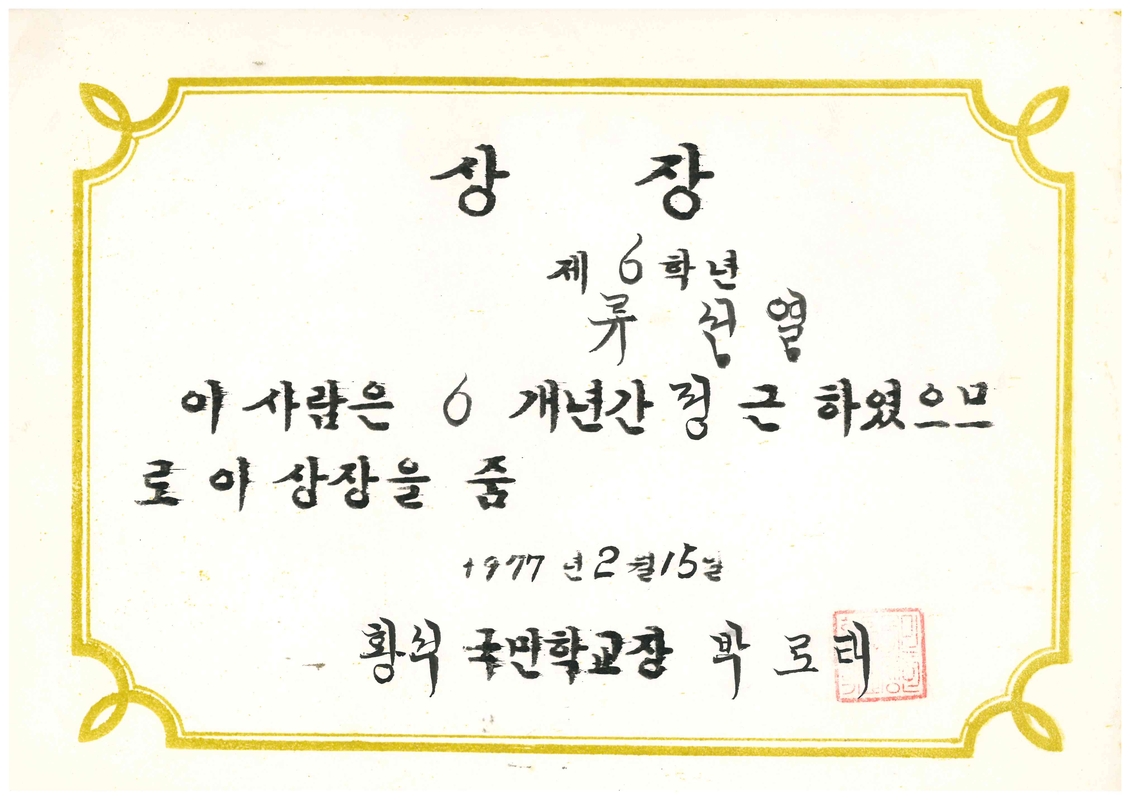 상 장
제 6 학년
류 선 열
이 사람은 6 개년간 정 근 하였으므
로 이 상장을 줌
1977 년 2 월 15 일
황석 국민학교장 박 로 태